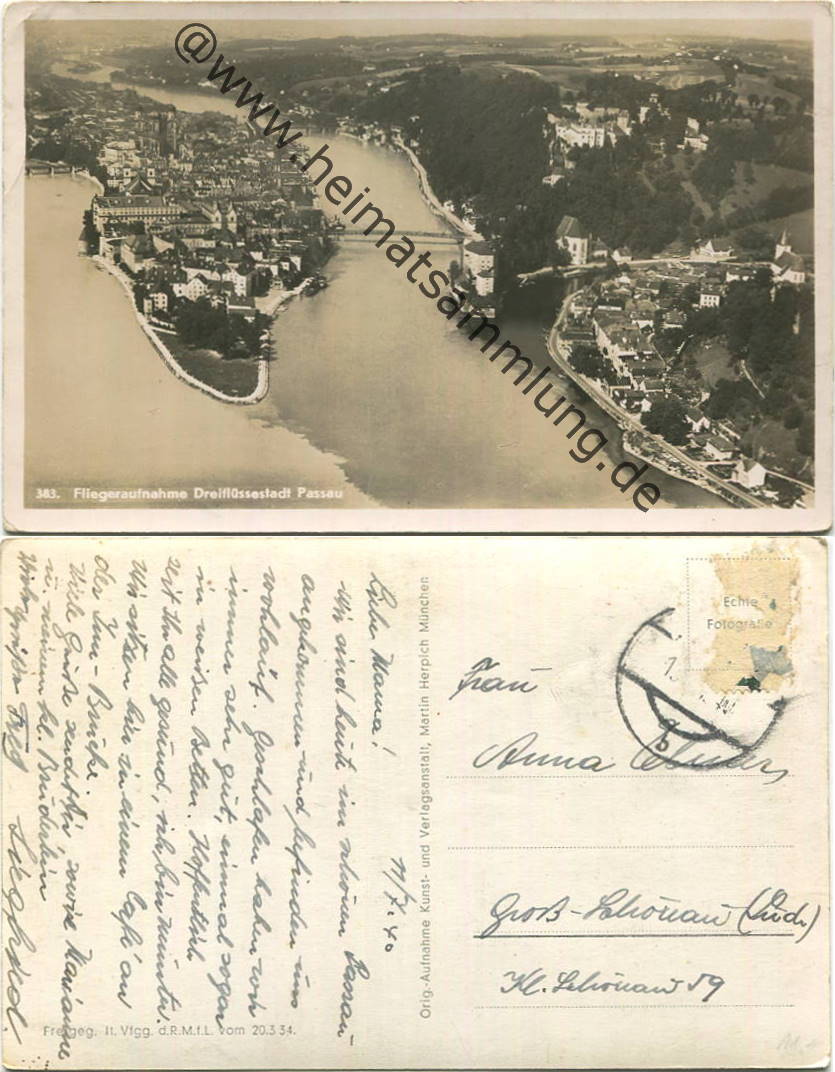 @www.heimatsammlung.de
383. Fliegeraufnahme Dreiflüssestadt Passau
Liebe Mama!
11/7.40
Wir sind heute im schönen Passau
angekommen und befinden uns
wohlauf. Geschlafen haben wir
immer sehr gut, einmal sogar
in weißen Betten. Hoffentlich
seit Ihr alle gesund, ich bin munter.
Wir sitzen hier in einem Café an
der Inn-Brücke.
Viele Grüße sendet Dir, sowie Marianne
u. meinem kl. Brüderlein
Viele Grüße
Siegfried.
Orig.-Aufnahme Kunst- und Verlagsanstalt, Martin Herpich München
Echte
Fotografie
Frau
Anna
Groß-Schönau (Sudr.)
Kl. Schönau 59
Freigeg. lt. Vfgg. d.R.M.f.L. vom 20.3.34.